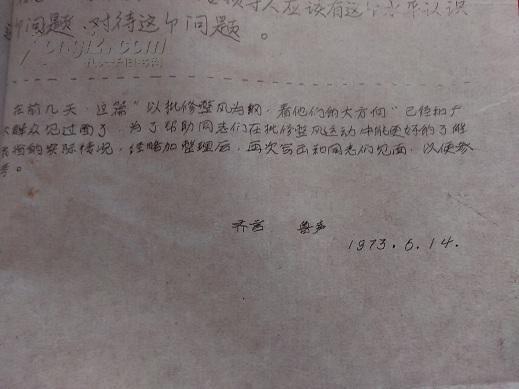 导人应该有这个水平认识
问题、对待这个问题。
在前几天,这篇“以批修整风为纲,看他们的大方向”已经和广
大群众见过面了,为了帮助同志们在批修整风运动中能更好的了解
的实际情况,经略加整理后,再次写出和同志们见面,以便参
考。
齐言 鲁声
1973.6.14.